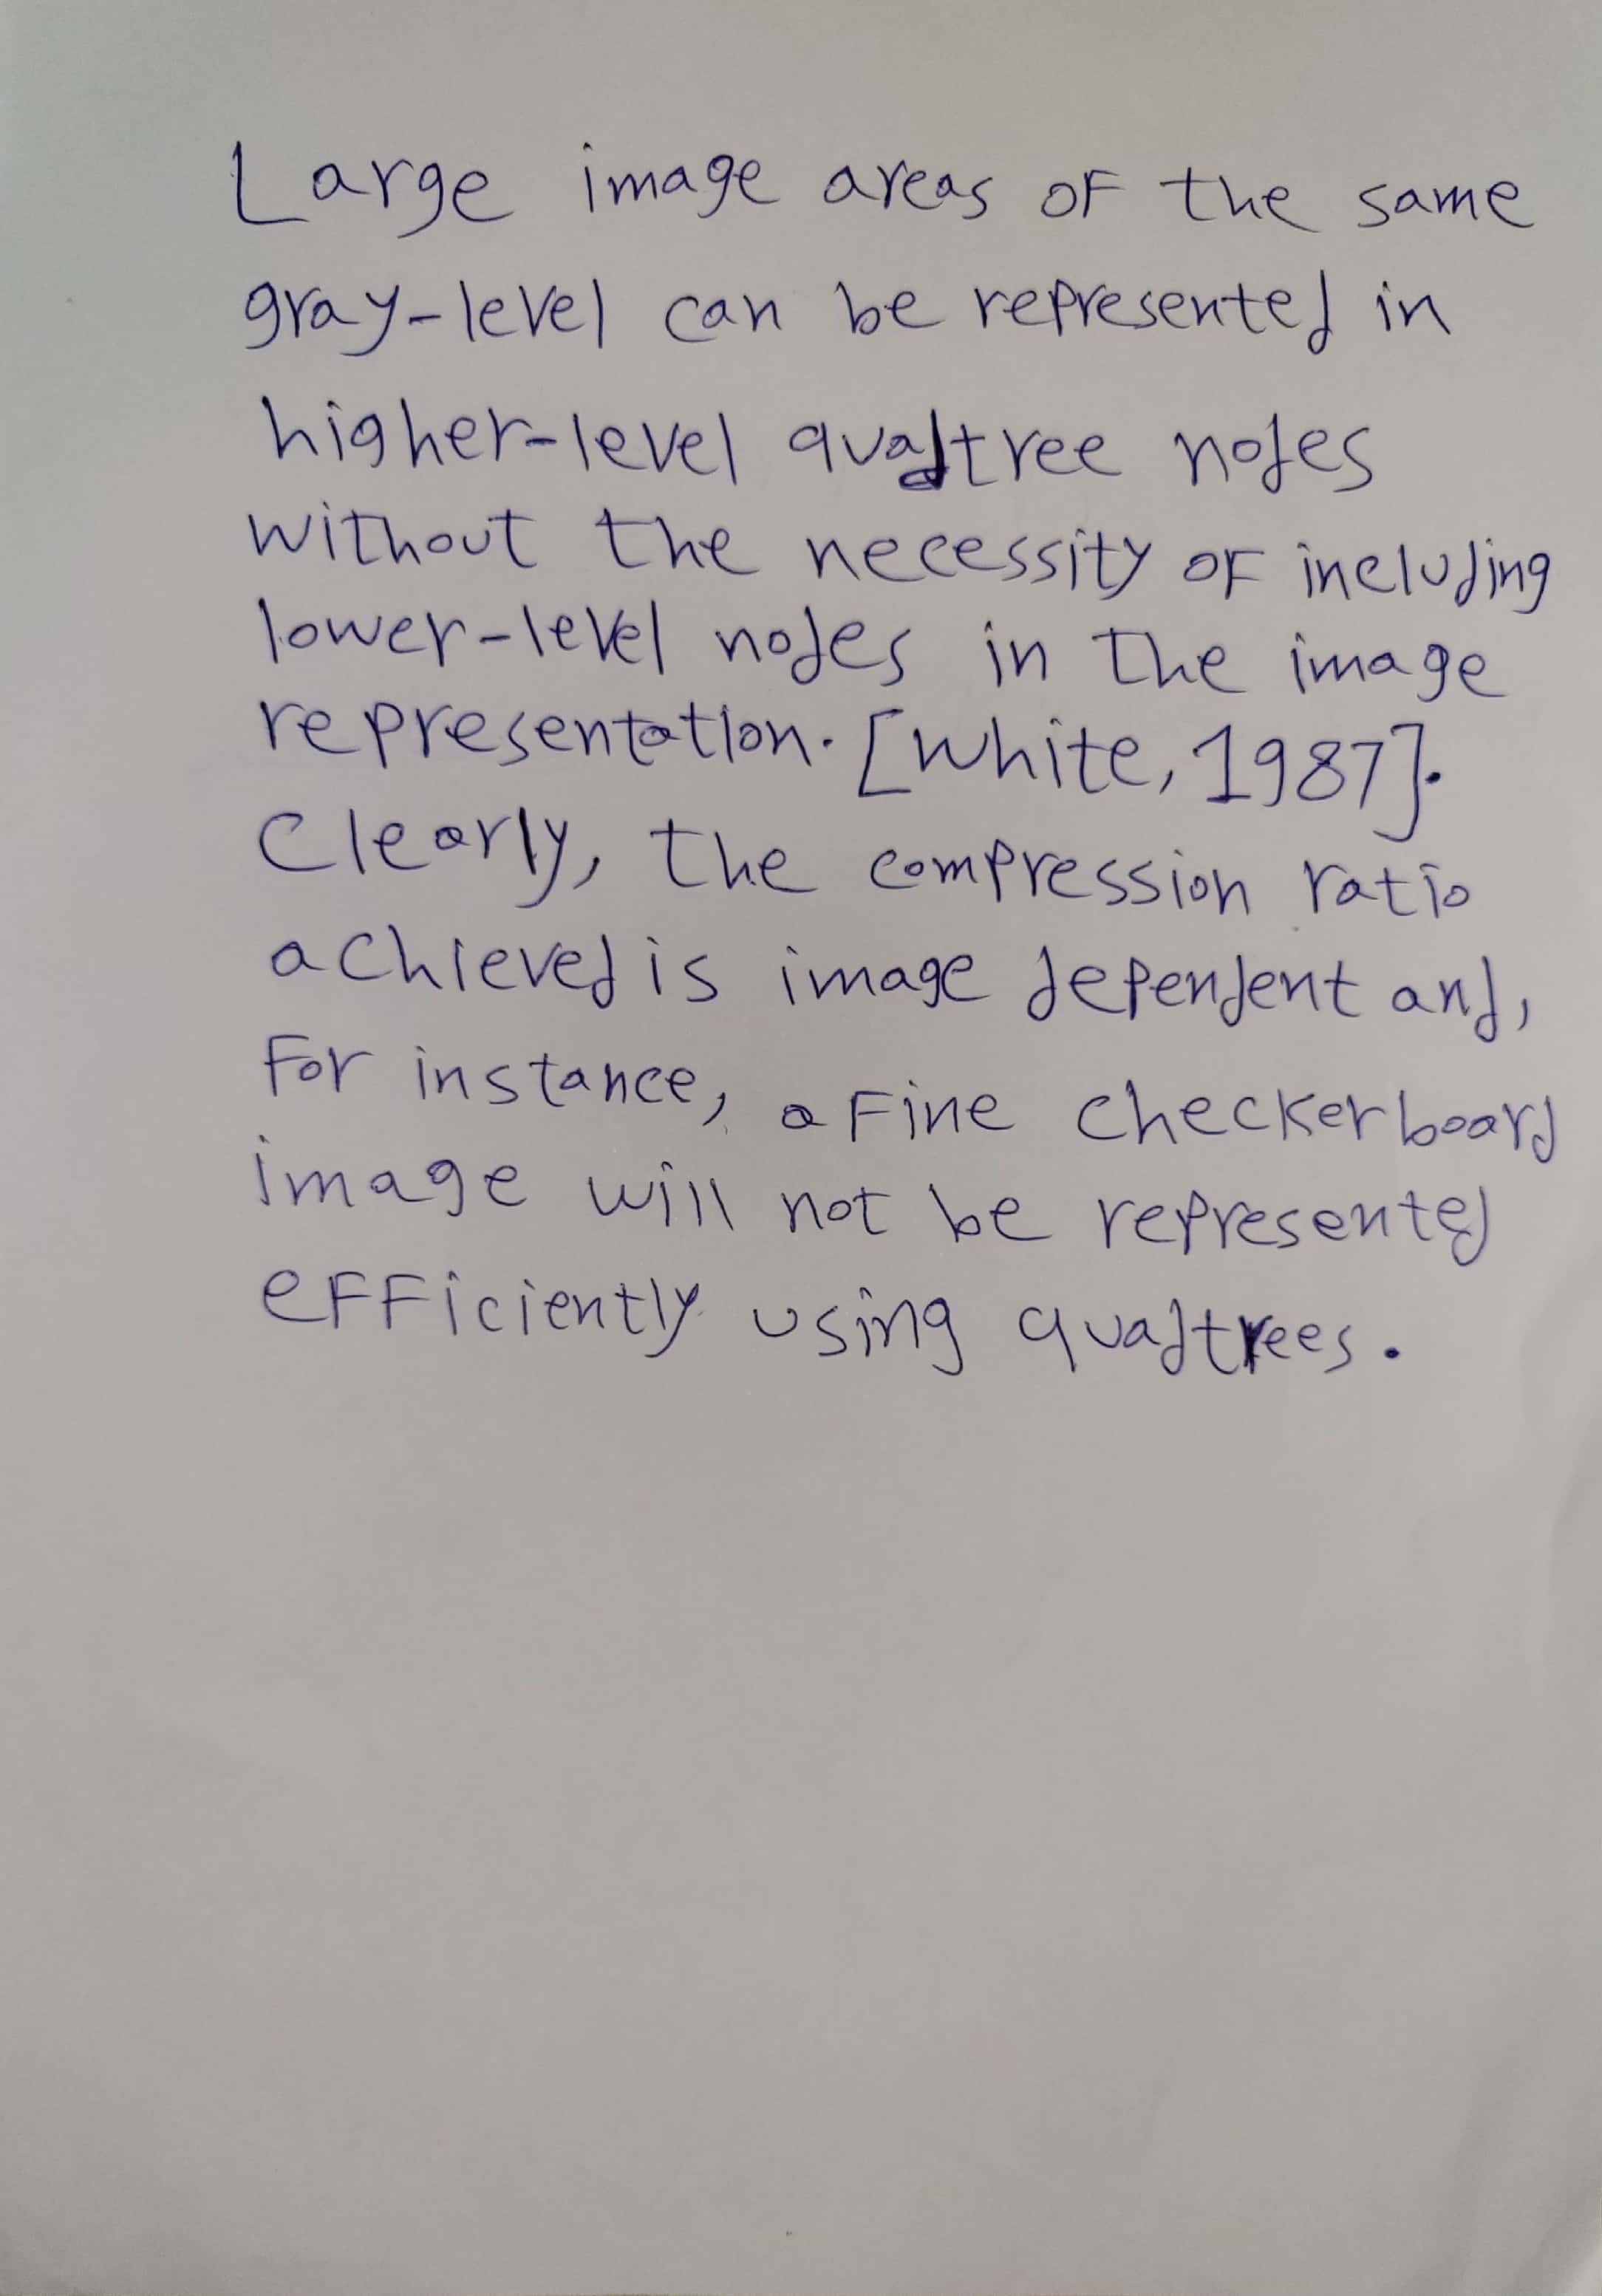 Large image areas of the same
gray-level can be represented in
higher-level quadtree nodes
without the necessity of including
lower-level nodes in the image
representation. [White, 1987].
Clearly, the compression ratio
achieved is image dependent and,
For instance, a fine checkerboard
image will not be represented
efficiently using quadtrees.